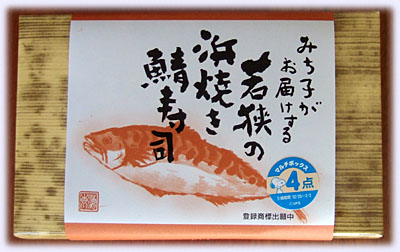 みち子が
お届けする
若狭の
浜焼き
鯖寿司
マルチボックス
4点
登録商標出願中